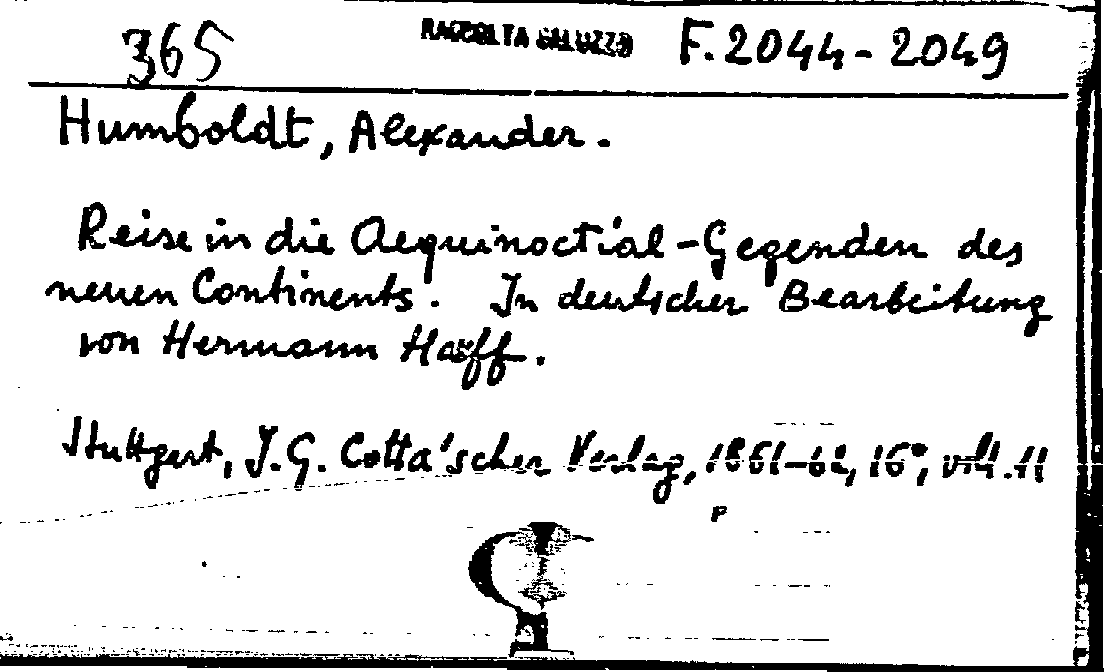 365 RACCOLTA GALUZZO F. 2044-2049
Humboldt, Alexander.
Reise in die Aequinoctial-Gegenden des
neuen Continents. In deutscher Bearbeitung
von Hermann Hauff.
Stuttgart, J.G. Cotta'scher Verlag, 1861-62, 16°,
P